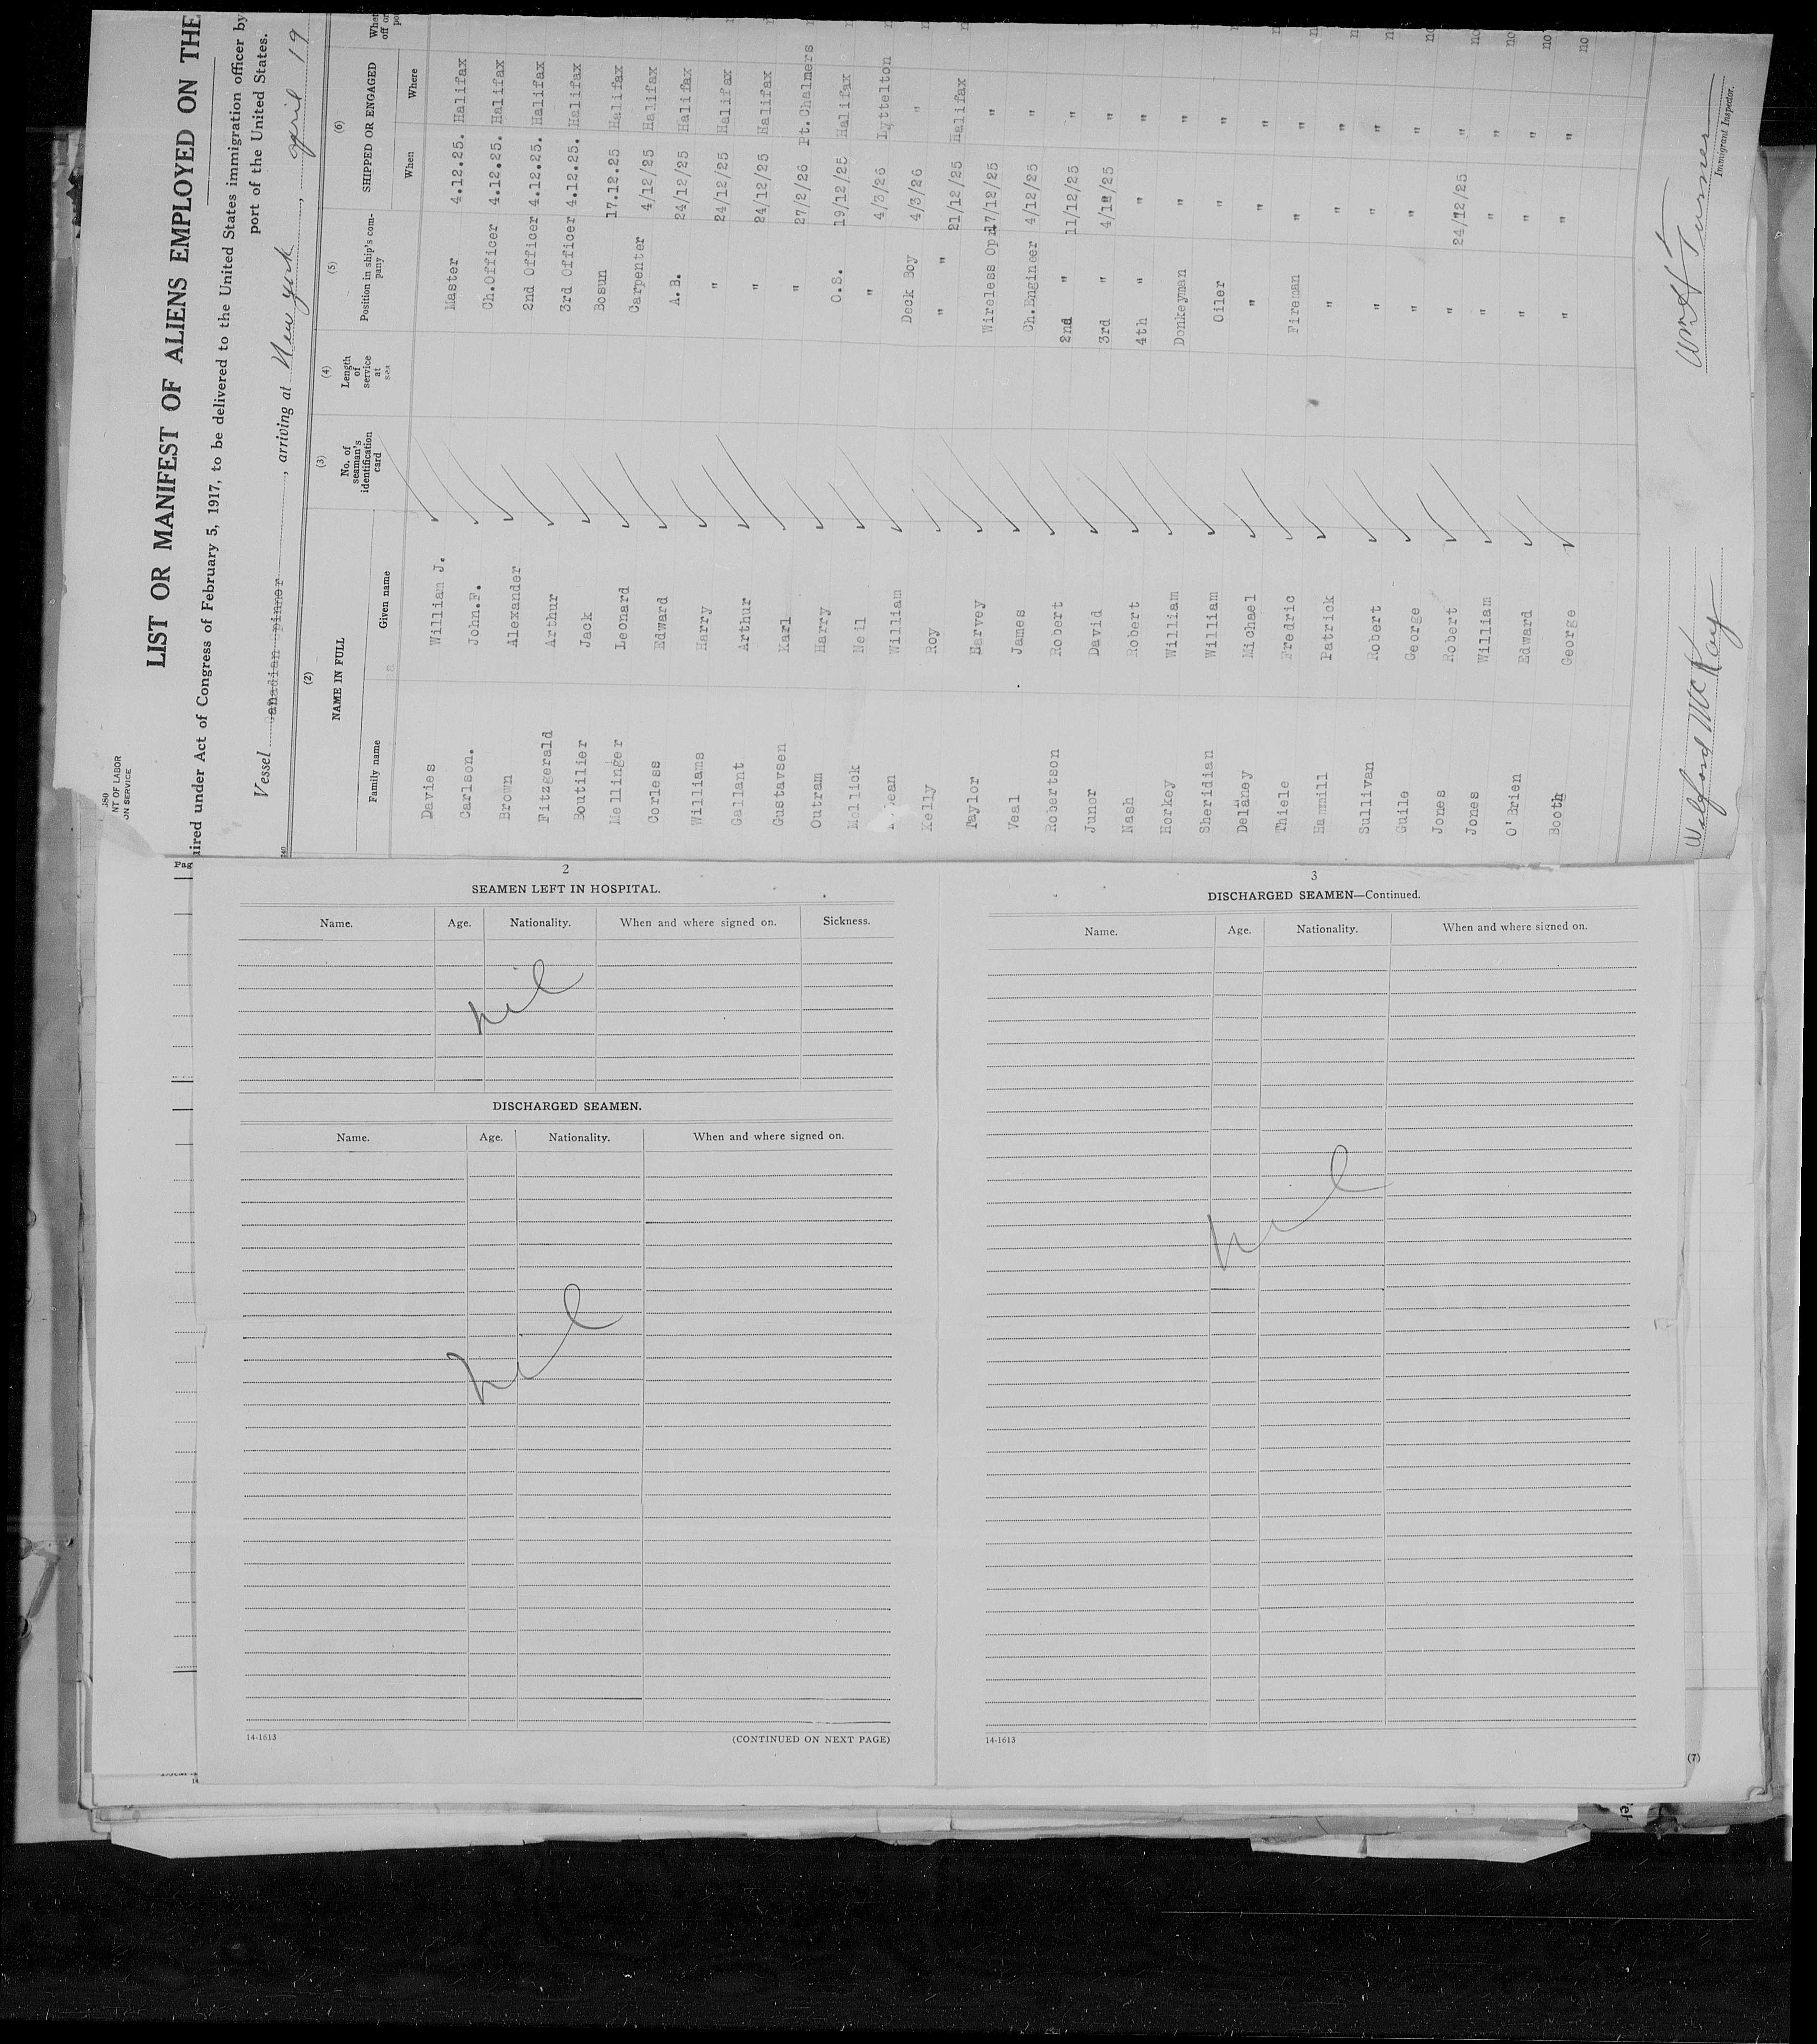 LIST OR MANIFEST OF ALIENS EMPLOYED ON THE
uired under Act of Congress of February 5, 1917, to be delivered to the United States immigration officer by
port of the United States.
NT OF LABOR
ON SERVICE
Vessel anadian pinner, arriving at New York, april 19
(2) (3) (4) (5) (6)
NAME IN FULL
Family name Given name
No. of seaman's identification card
Length of service at sea
Position in ship's company
SHIPPED OR ENGAGED
When Where
Davies William J. Master 4.12.25. Halifax
Carlson. John.F. Ch.Officer 4.12.25. Halifax
Brown Alexander 2nd Officer 4.12.25. Halifax
Fitzgerald Arthur 3rd Officer 4.12.25. Halifax
Boutilier Jack Bosun 17.12.25 Halifax
Mellinger Leonard Carpenter 4/12/25 Halifax
Corless Edward A.B. 24/12/25 Halifax
Williams Harry " 24/12/25 Halifax
Gallant Arthur " 24/12/25 Halifax
Gustavsen Karl " 27/2/26 Pt.Chalmers
Outram Harry O.S. 19/12/25 Halifax
Mellick Neil " 4/3/26 Lyttelton
ean William Deck Boy 4/3/26 "
Kelly Roy " " 21/12/25 Halifax
Taylor Harvey Wireless Opr 17/12/25 "
Veal James Ch.Engineer 4/12/25 "
Robertson Robert 2nd " 11/12/25 "
Junor David 3rd " 4/12/25 "
Nash Robert 4th " " "
Horkey William Donkeyman " "
Sheridian William Oiler " "
Delaney Michael " " "
Thiele Fredric Fireman " "
Hammill Patrick " " "
Sullivan Robert " " "
Guile George " " "
Jones Robert " 24/12/25 "
Jones William " " "
O'Brien Edward " " "
Booth George " " "
Wilford McKay
Wm H Turner
Immigrant Inspector.
Pag
2
SEAMEN LEFT IN HOSPITAL.
Name. Age. Nationality. When and where signed on. Sickness.
nil
DISCHARGED SEAMEN.
Name. Age. Nationality. When and where signed on.
nil
14-1613 (CONTINUED ON NEXT PAGE)
3
DISCHARGED SEAMEN—Continued.
Name. Age. Nationality. When and where signed on.
nil
14-1613
(7)